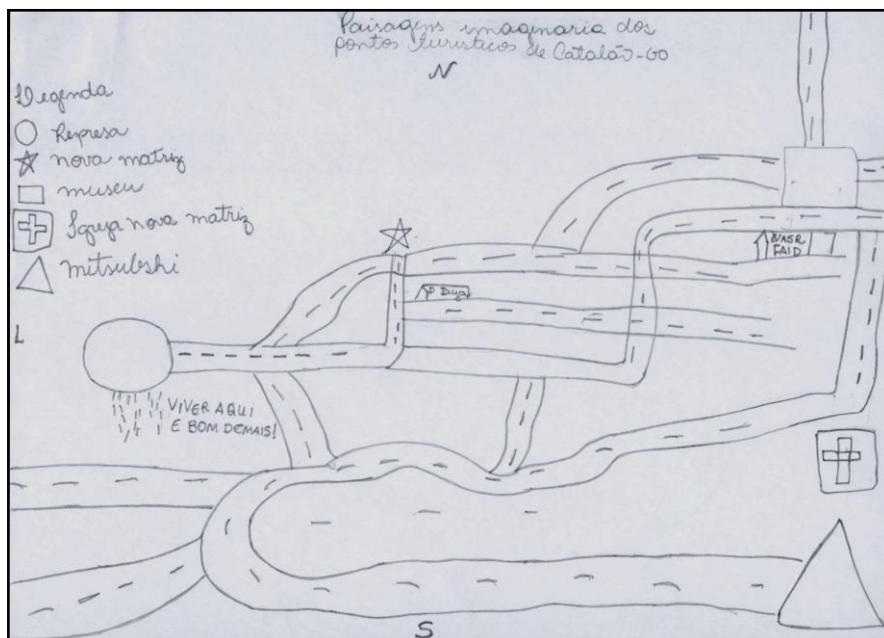 Paisagens imaginaria dos
pontos turisticos de Catalão-GO
N
Legenda
Represa
nova matriz
museu
Igreja nova matriz
mitsubshi
NASR
FAID
L
VIVER AQUI
E BOM DEMAIS!
S